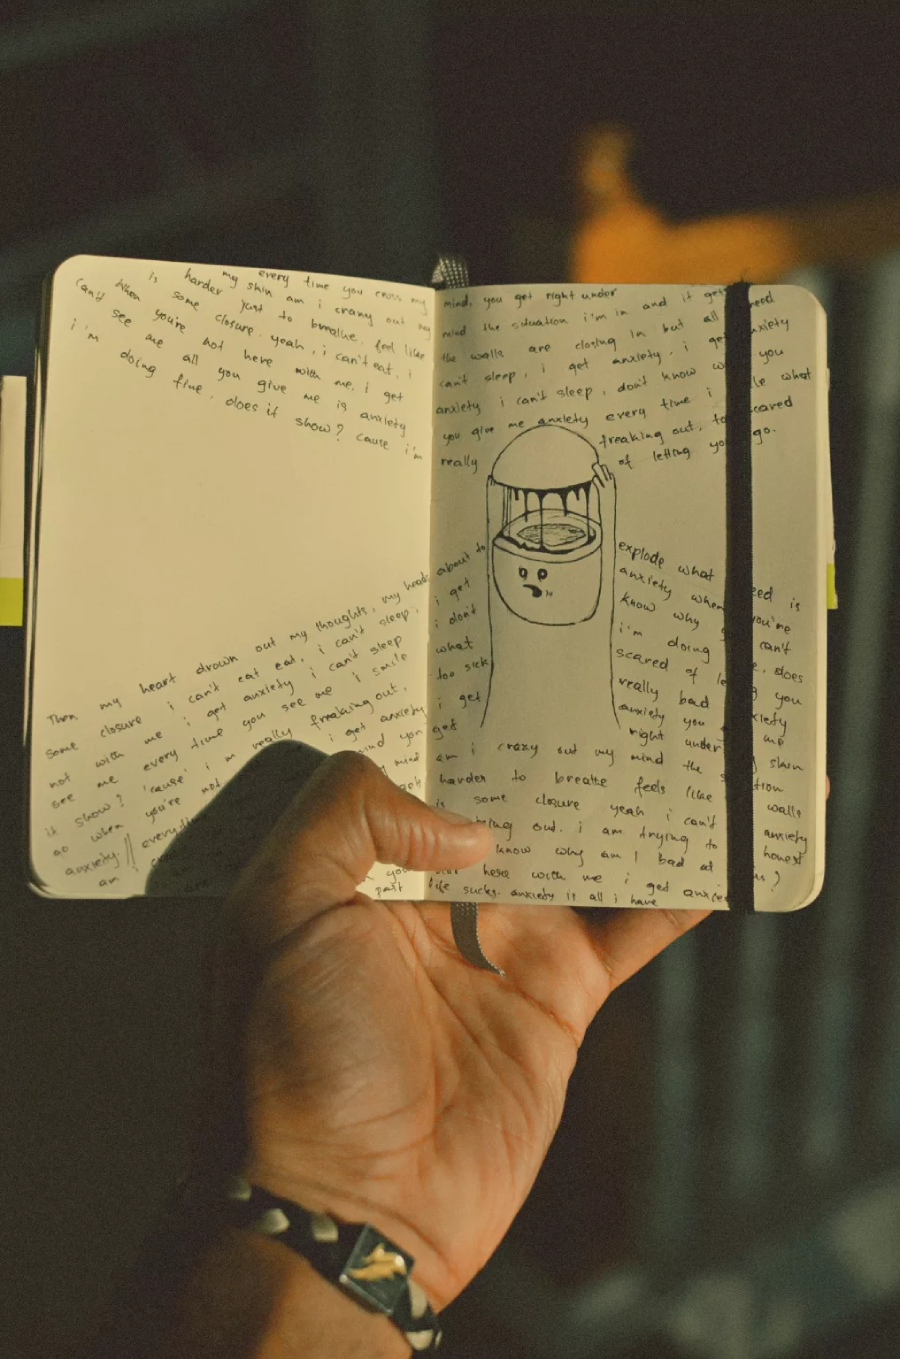 my every time you cross my
is harder my skin am i crazy out my
can't when some just to breathe, feel like
see you're closure. yeah, i can't eat, i
i'm me not here with me. i get
doing all you give me is anxiety
fine, does it show? cause i'm
Then my heart drown out my thoughts, my heads
some closure i can't eat eat, i can't sleep,
not with me i get anxiety i can't sleep
see me every time you see me i smile
it show? 'cause' i'm really freaking out,
so when you're not i get anxiety
anxiety // mind you
am i my mind
past
mind, you get right under
mind the situation i'm in and it gets need
the walls are closing in but all anxiety
can't sleep, i get anxiety. i get you
anxiety i can't sleep, don't know what
you give me anxiety every time i scared
really freaking out, go.
of letting you
about to explode what is
i get anxiety when you're
i don't know why can't
what i'm doing does
too sick scared of you
i get really bad anxiety
get anxiety you me
right under skin
am i crazy out my mind the
harder to breathe feels like
is some closure yeah i can't walls
out. i am trying to anxiety
know why am I bad at honest
here with me i get ?
life sucks. anxiety is all i have